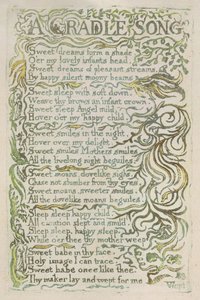 A CRADLE SONG
Sweet dreams form a shade
O'er my lovely infants head.
Sweet dreams of pleasant streams,
By happy silent moony beams
Sweet sleep with soft down,
Weave thy brows an infant crown.
Sweet sleep Angel mild,
Hover o'er my happy child.
Sweet smiles in the night,
Hover over my delight.
Sweet smiles Mothers smiles
All the livelong night beguiles.
Sweet moans, dovelike sighs,
Chase not slumber from thy eyes.
Sweet moans, sweeter smiles,
All the dovelike moans beguiles.
Sleep sleep happy child.
All creation slept and smil'd.
Sleep sleep, happy sleep,
While o'er thee thy mother weep
Sweet babe in thy face,
Holy image I can trace.
Sweet babe once like thee,
Thy maker lay and wept for me